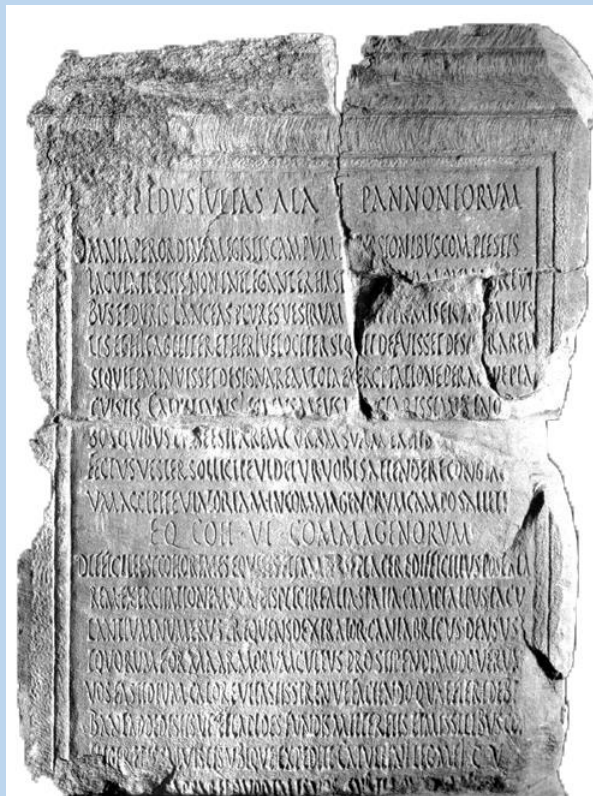 IDVS IVLIAS ALA PANNONIORVM
OMNIA PER ORDINEM EGISTIS CAMPVM SIONIBVS COMPLESTIS
IACVLATI ESTIS NON INELEGANTER HAS
BVS ET DVRIS LANCEAS PLVRES VESTRVM MISERVNT SALVIS
TIS ET HIC AGILITER ET HERI VELOCITER SI QVIT DEFVISSET DESI RAREM
SI QVIT EMINVISSET DESIGNAREM TOTA EXERCITATIONE PERAEQVE PLA
CVISTIS CATVLLINVS LEGATVS MEVS
BVS QVIBVS PRAEEST PAREM CVRAM SVAM
FECTVS VESTER SOLLICITE VIDETVR VOBIS ATTENDERE CONGIARI
VM ACCIPITE VIATORIAM IN COMMAGENORVM CAMPO SALIETIS
EQ COH VI COMMAGENORVM
DIFFICILE EST COHORTALES EQVITES ETIAM PER SE PLACERE DIFFICILIVS POST ALA
REM EXERCITATIONEM NON DISPLICERE ALIA SPATIA CAMPI ALIVS IACV
LANTIVM NVMERVS FREQVENS DEXTRATOR CANTABRICVS DENSVS
EQVORVM FORMA ARMORVM CVLTVS PRO STIPENDI MODO VERVM
VOS FASTIDIVM CALORE VITASTIS STRENVE FACIENDO QVAE FIERI DEBE
BANT ADDIDISTIS VT ET LAPIDES FVNDIS MITTERETIS ET MISSILIBVS CO
SALVISTIS VBIQVE EXPEDITE CATVLLINI LEG MEI C V